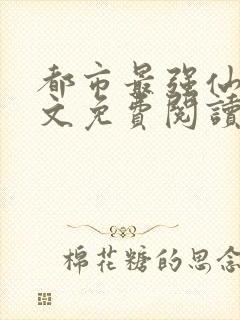 都市最强仙
文免費閱讀
棉花糖的思念